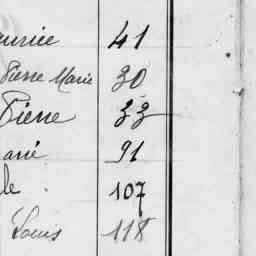 aurice 41
Pierre Marie 30
Pierre 33
arié 91
le. 107
Louis 118